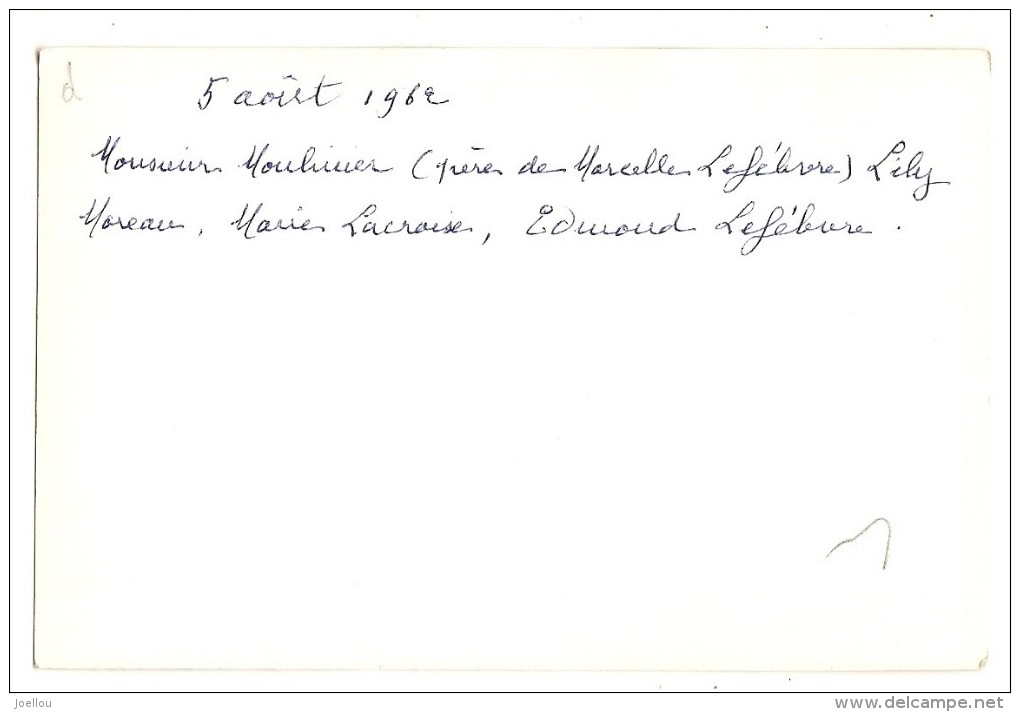 d
5 août 1962
Monsieur Moulinier (père de Marcelle Lefébvre) Lily
Moreau, Marie Lacroix, Edmond Lefébvre.
1
joellou
www.delcampe.net